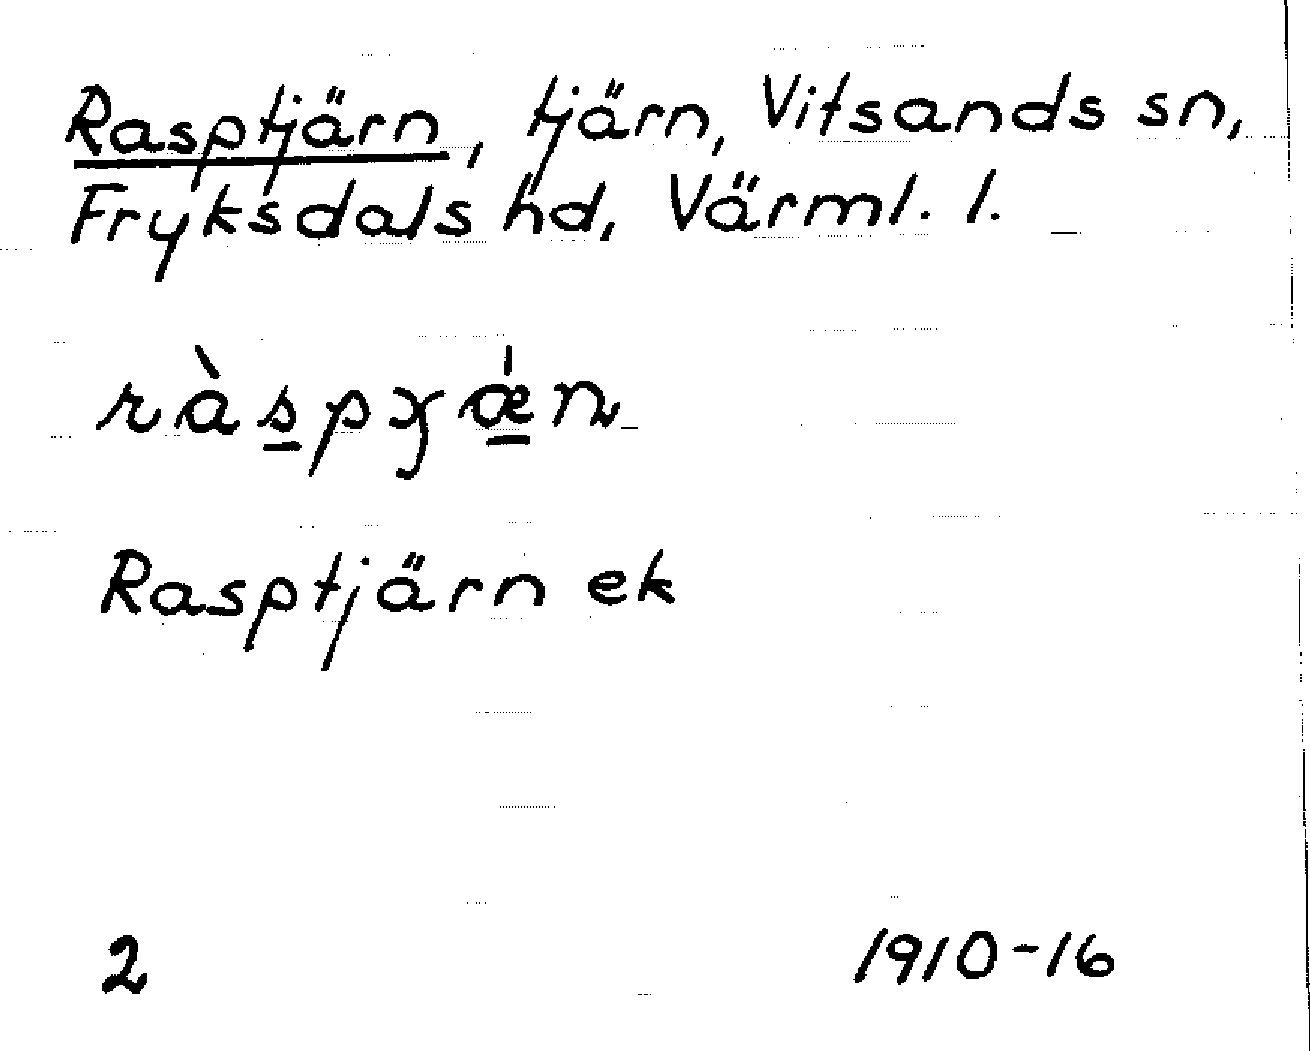 Rasptjärn, tjärn, Vitsands sn,
Fryksdals hd, Värml. l.
ràs̲pɣǽ̲n
Rasptjärn ek
2
1910-16